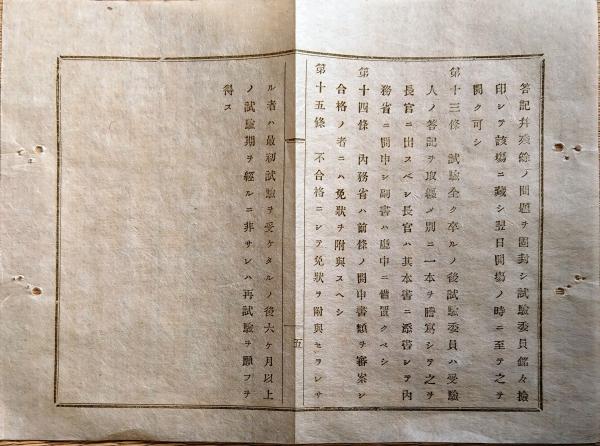 答記幷殘餘ノ問題ヲ固封シ試驗委員銘々撿
印シテ該場ニ藏シ翌日開場ノ時ニ至テ之ヲ
開ク可シ
第十三條 試驗全ク卒ルノ後試驗委員ハ受驗
人ノ答記ヲ取纒メ別ニ一本ヲ謄寫シテ之ヲ
長官ニ出スベシ長官ハ其本書ニ添書シテ內
務省ニ開申シ副書ハ廳中ニ備置クベシ
第十四條 內務省ハ前條ノ開申書類ヲ審案シ
合格ノ者ニハ免狀ヲ附與スヘシ
第十五條 不合格ニシテ免狀ヲ附與セラレサ
五
ル者ハ最初試驗ヲ受ケタルノ後六ケ月以上
ノ試驗期ヲ經ルニ非サレハ再試驗ヲ願フヲ
得ス